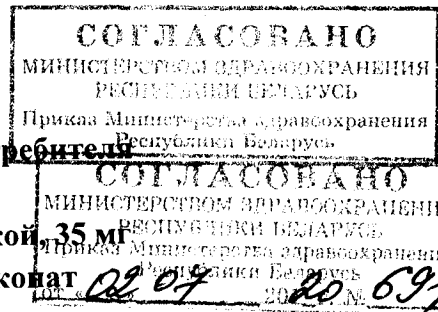 СОГЛАСОВАНО
МИНИСТЕРСТВОМ ЗДРАВООХРАНЕНИЯ
РЕСПУБЛИКИ БЕЛАРУСЬ
Приказ Министерства здравоохранения
Республики Беларусь
ребителя
СОГЛАСОВАНО
МИНИСТЕРСТВОМ ЗДРАВООХРАНЕНИ
РЕСПУБЛИКИ БЕЛАРУСЬ
кой, 35 мг
Приказ Министерства здравоохранени
Республики Беларусь
конат
от « 02 07 2020 № 692